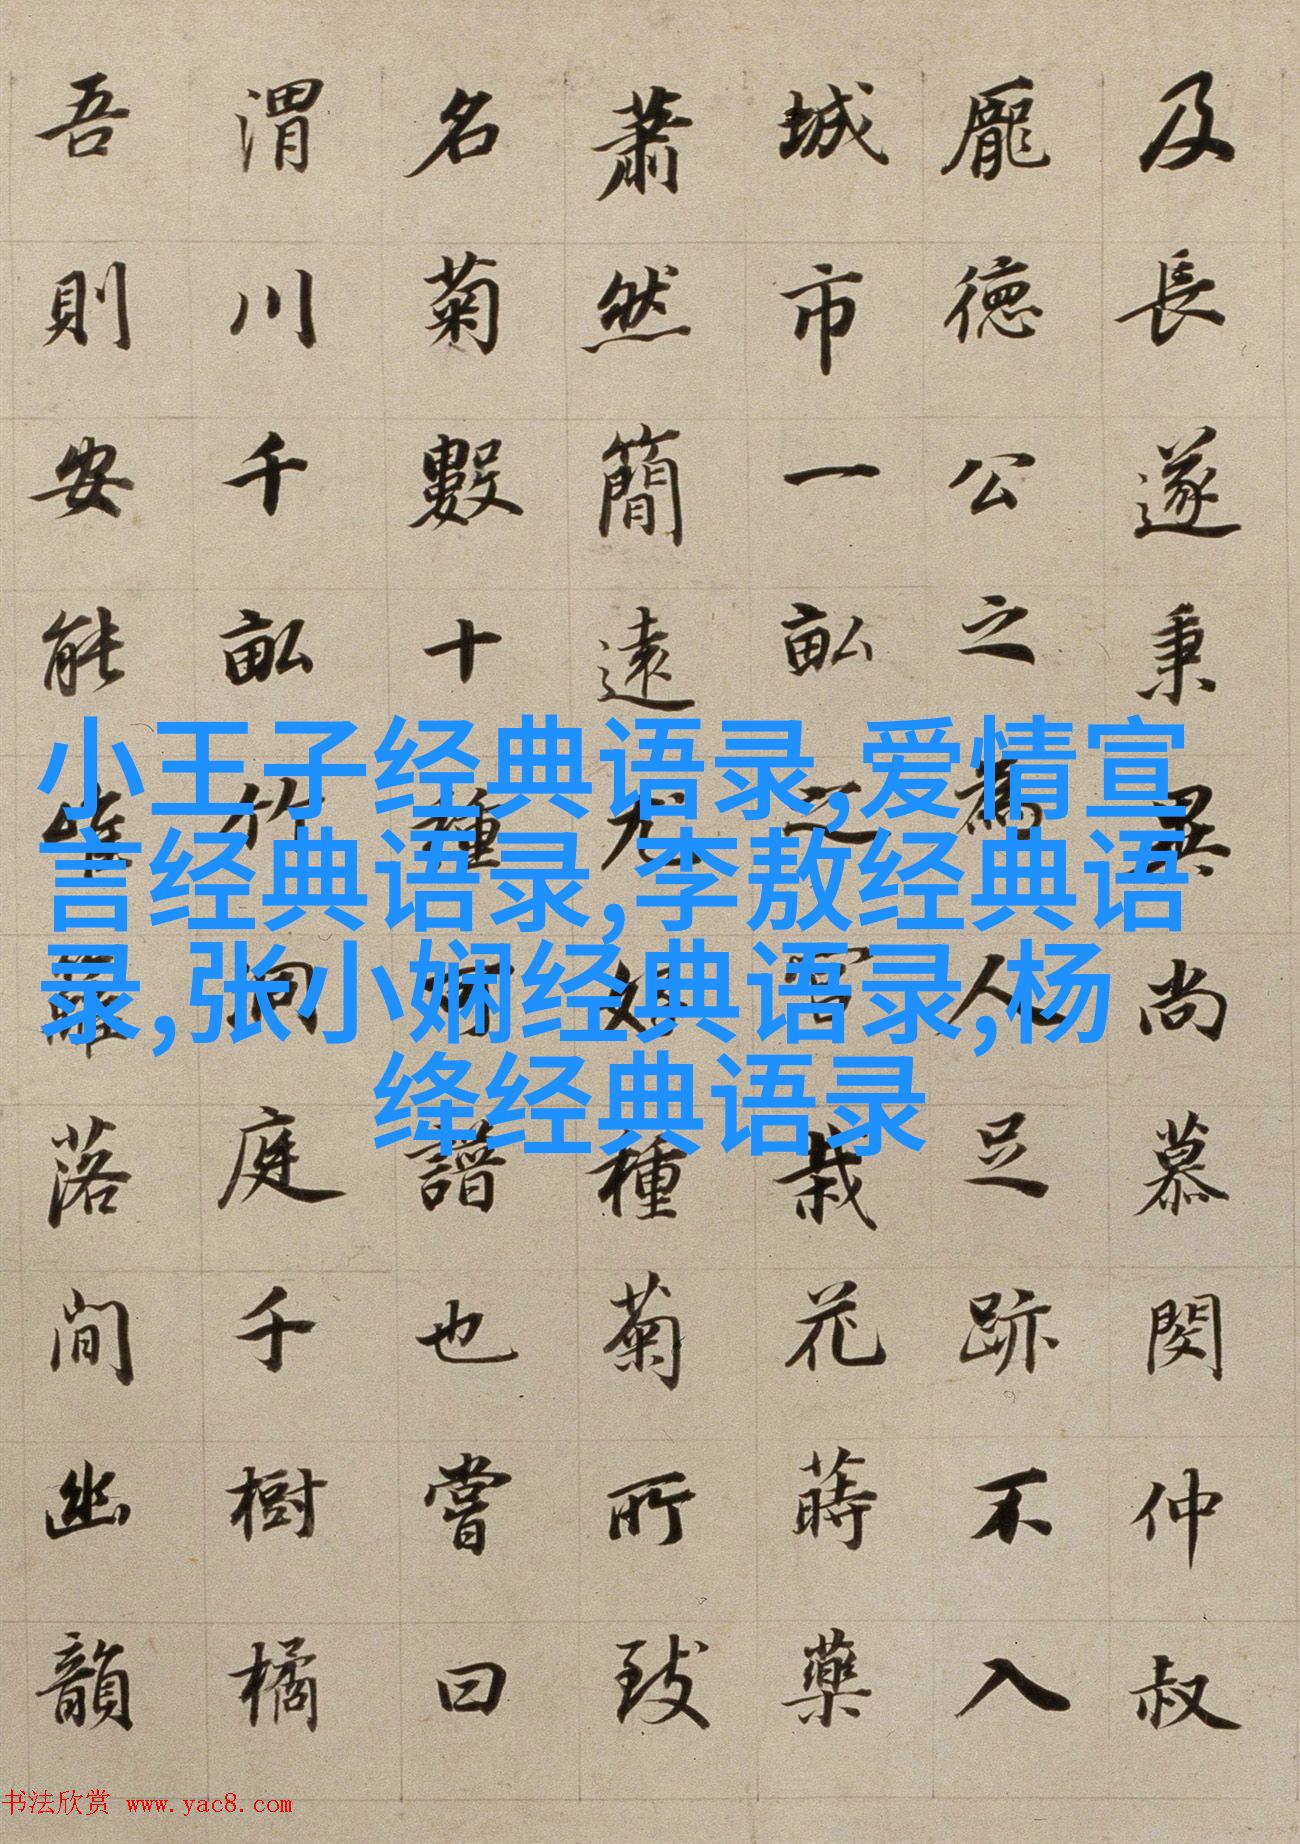 及長遂秉異尚慕閔仲叔
龐德公之為人足跡不入
城市一畝之宮栽花蒔藥
蕭然簡遠尤好種菊所致
名菊數十種譜也嘗曰
渭川千畝竹洞庭千樹橘
吾則安能唯籬落間幽韻
小王子经典语录,爱情宣
言经典语录,李敖经典语
录,张小娴经典语录,杨
绛经典语录
书法欣赏 www.yac8.com